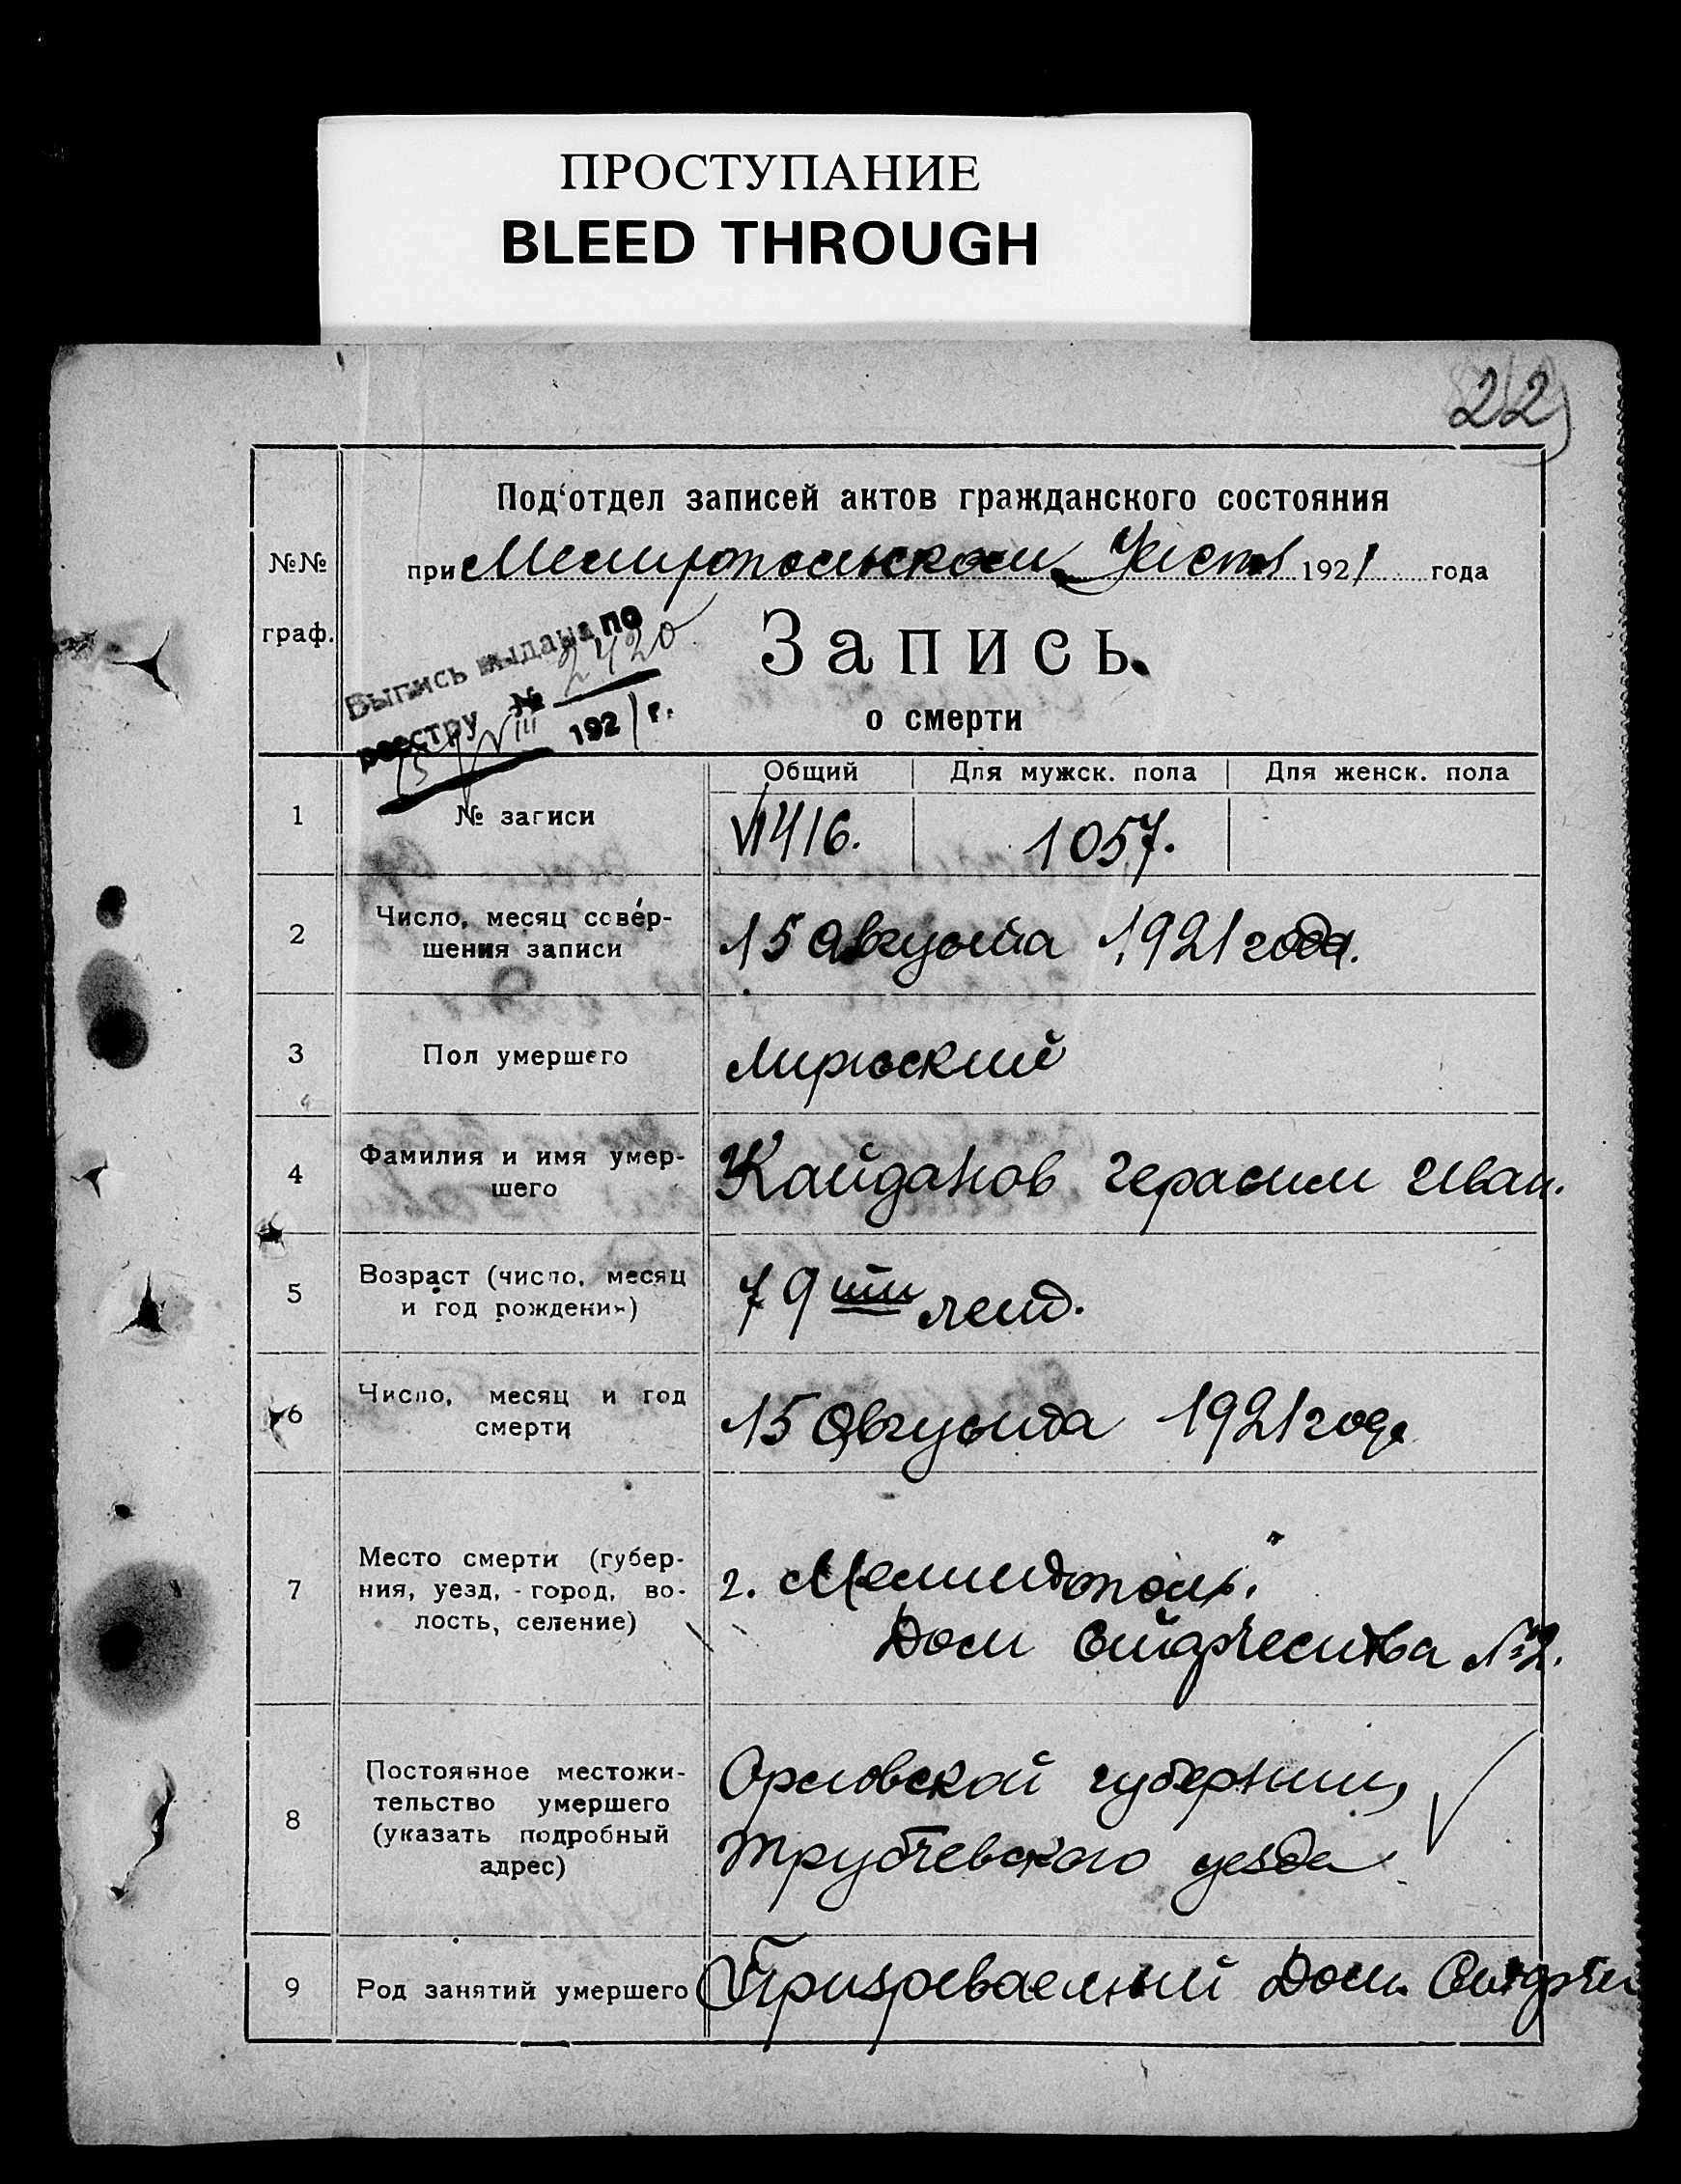 ПРОСТУПАНИЕ
BLEED THROUGH
22
Под‘отдел записей актов гражданского состояния
№№ граф.
при Мелитопольском 1921 года
Выпись выдана по
реестру № 2420
15/VIII 1921 г.
Запись
о смерти
Общий Для мужск. пола Для женск. пола
1 № записи 1416. 1057.
2 Число, месяц совер-
шения записи 15 Августа 1921 года.
3 Пол умершего мужской
4 Фамилия и имя умер-
шего Кайданов Герасим Иван.
5 Возраст (число, месяц
и год рождения) 79 ти лет.
6 Число, месяц и год
смерти 15 Августа 1921 года
7 Место смерти (губер-
ния, уезд, - город, во-
лость, селение)
г. Мелитополь.
Дом Старчества №2.
8 Постоянное местожи-
тельство умершего
(указать подробный
адрес)
Орловской губернии,
Трубчевского уезда
9 Род занятий умершего Призреваемый Дом. Старче